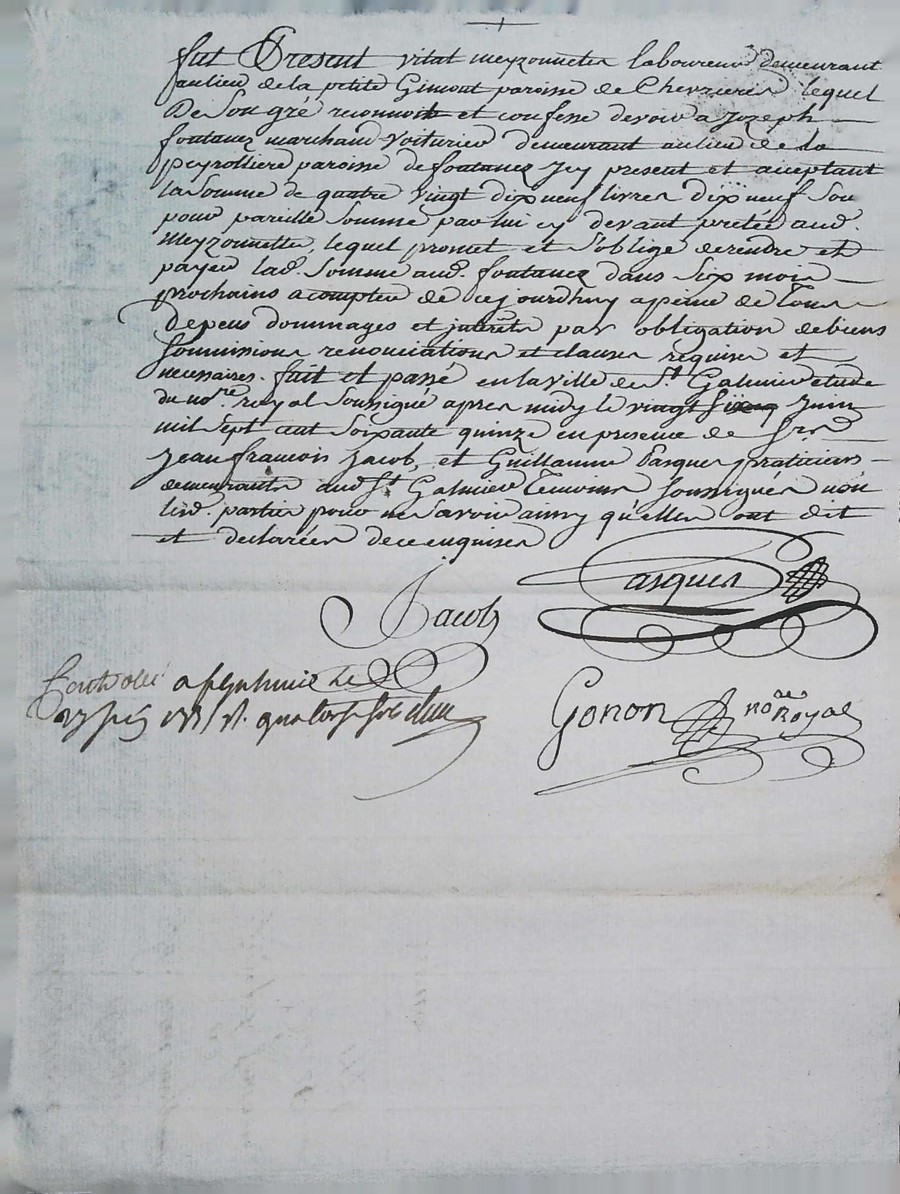 fut Present vital meyzonnetes laboureur demeurant
aulieu de la petite Gimont paroisse de Chevrieres lequel
De Son gré reconnoit et confesse devoir a Jozeph
fontanez marchand Voiturier demeurant aulieu de la
peyrolliere paroisse de fontanez Jcy present et acceptant
la Somme de quatre Vingt dixneuf livres dixneuf Sou
pour pareille Somme par lui cy devant pretée aud.
Meyzonnette, lequel promet et S'oblige de rendre et
payer lad. Somme aud. fontanez dans Six mois
prochains acompter de cejourdhuy apeine de Tous
Depens dommages et jnterets par obligation de biens
Soumissions renonciations et clauses requises et
necessaires. fait et passé en la ville de St. Galmier etude
du nore. royal Soussigné apres midy le vingt Juin
mil Sept cent Soixante quinze en presence de Srs
Jean francois Jacob, et Guillaume Pasques praticiens
demeurants aud St Galmier Temoins Soussignés non
lesd. parties pour ne Savoir ainsy qu'elles ont dit
et declarées de ce enquises
Pasques
Jacob
Controlé a St galmier le
27 juin 1775 R. quatorze sols
Gonon nore Royal